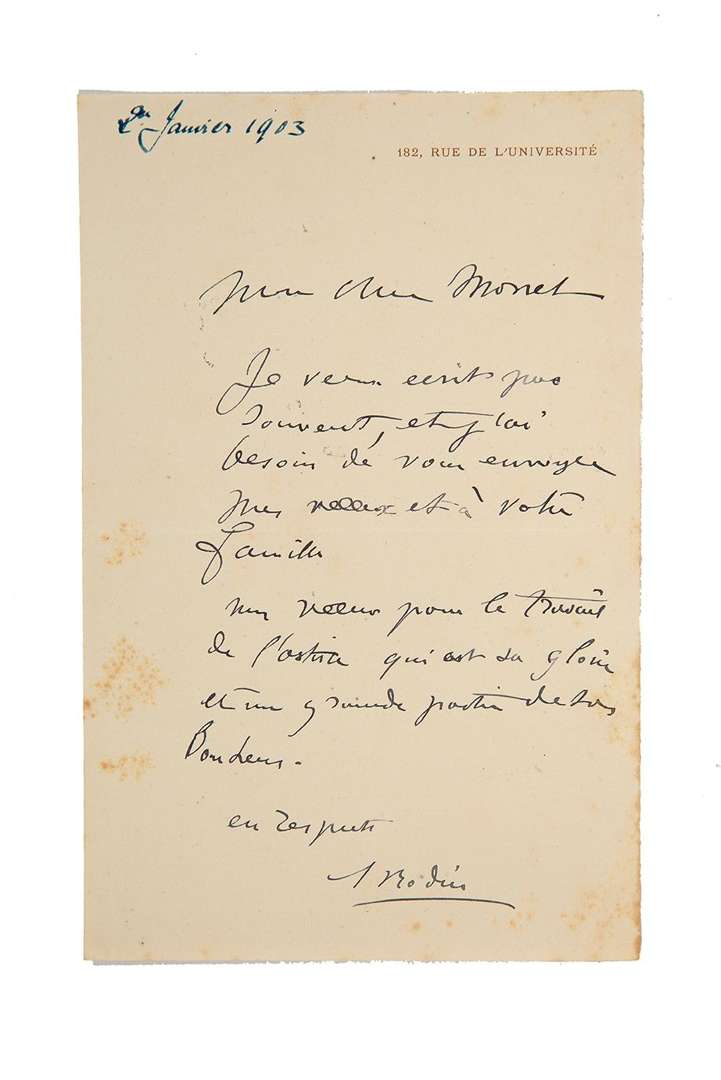 2 Janvier 1903
182, RUE DE L'UNIVERSITÉ
mon cher Monet
Je vous ecrits pas
souvent, et j'ai
besoin de vous envoyer
mes vœux et à votre
famille
mes vœux pour le travail
de l'artiste qui est sa gloire
et une grande partie de son
Bonheur.
en respects
A Rodin